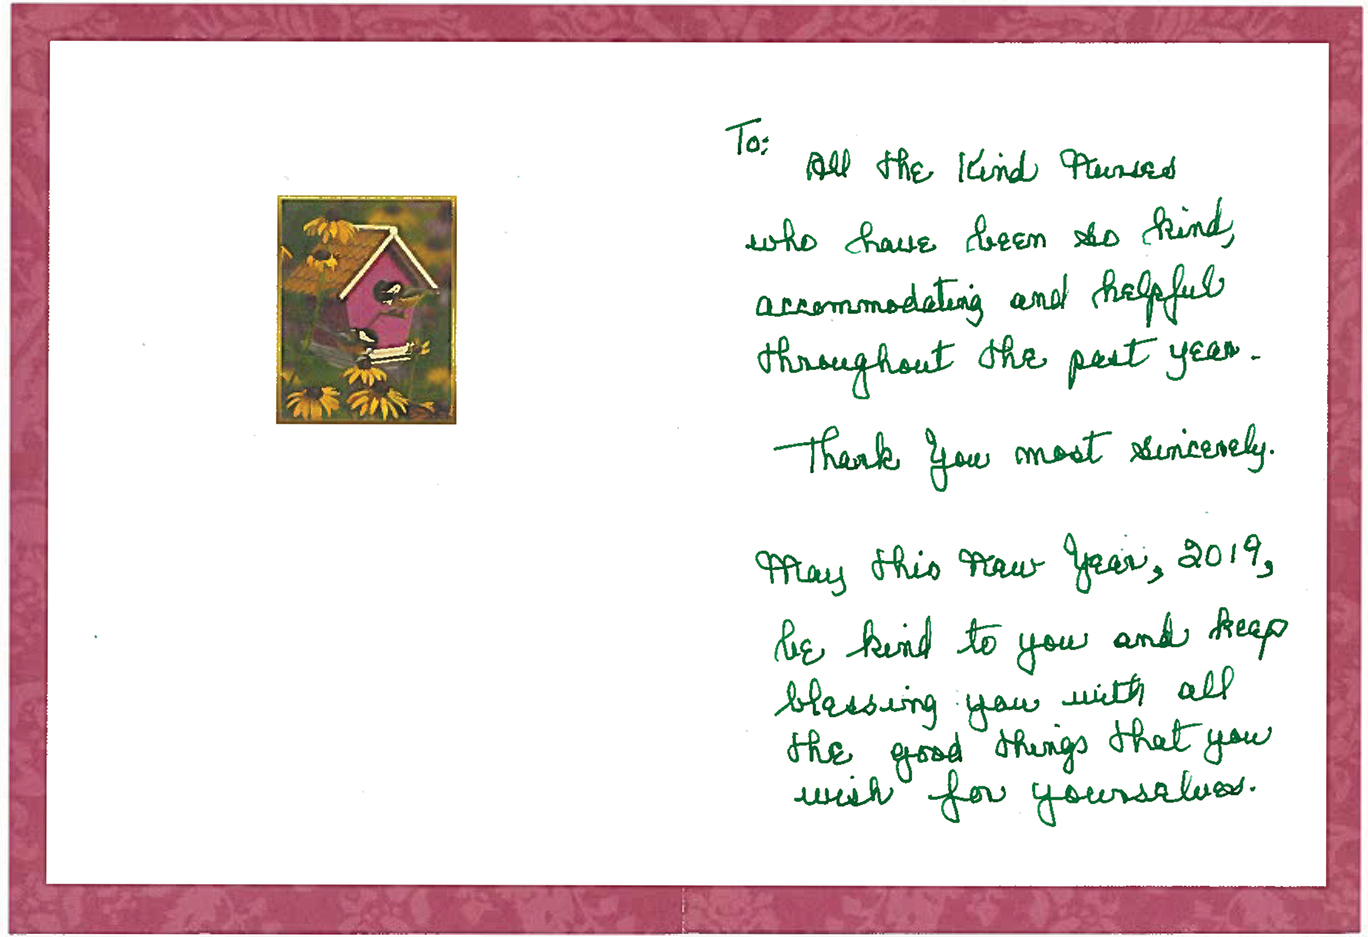 To:
All the Kind Nurses
who have been so kind,
accommodating and helpful
throughout the past year.
Thank You most sincerely.
May this New Year, 2019,
be kind to you and keep
blessing you with all
the good things that you
wish for yourselves.